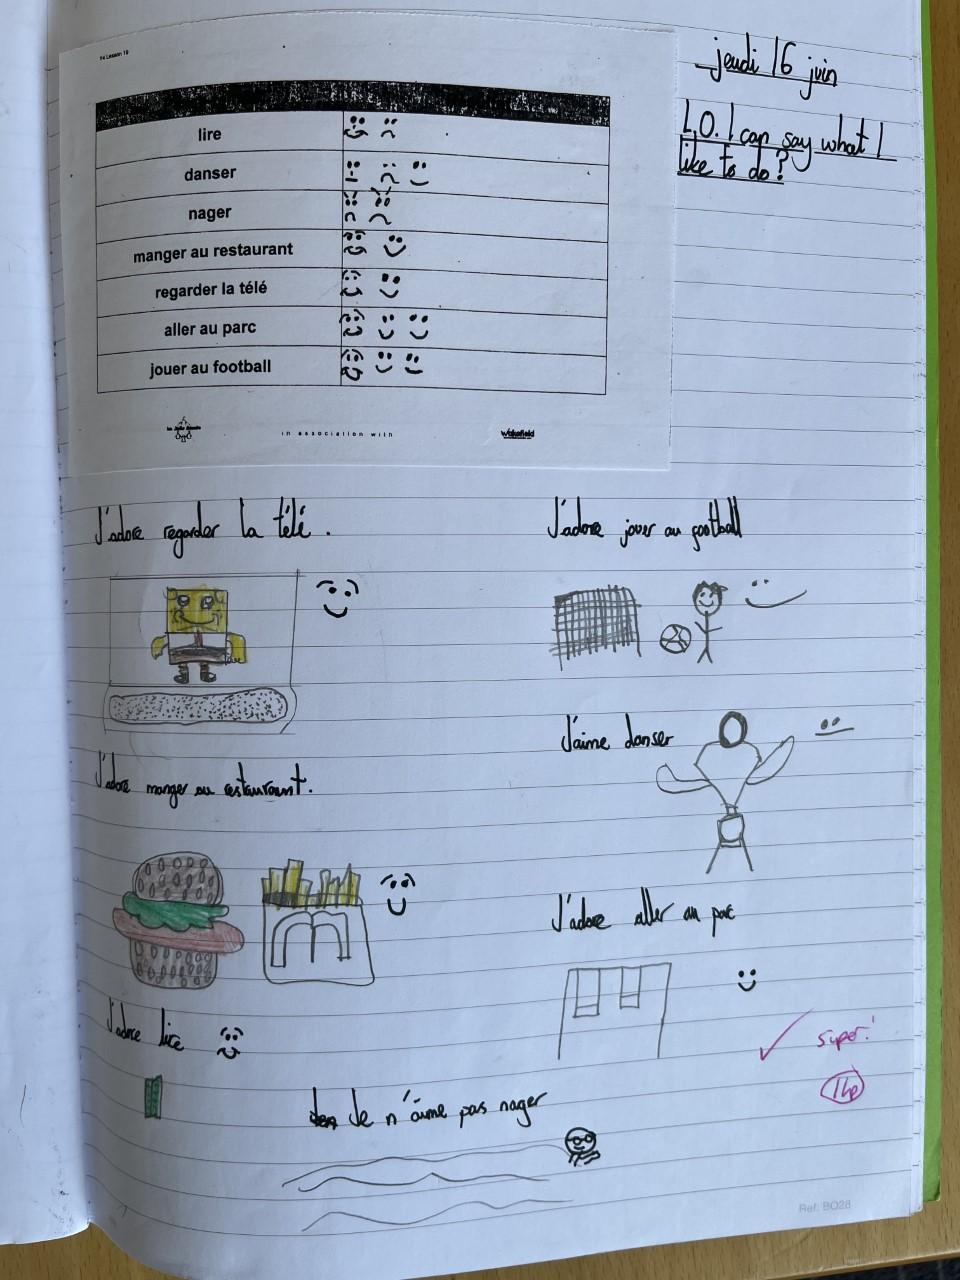 Y4 Lesson 19
jeudi 16 juin
L.O. I can say what I
like to do?
lire
danser
nager
manger au restaurant
regarder la télé
aller au parc
jouer au football
in association with
Wakefield
J'adore regarder la télé.
J'adore jouer au football
J'aime danser
J'adore manger au restaurant.
J'adore aller au parc
J'adore lire
super!
1Hp
Je n'aime pas nager
Ref: BO28